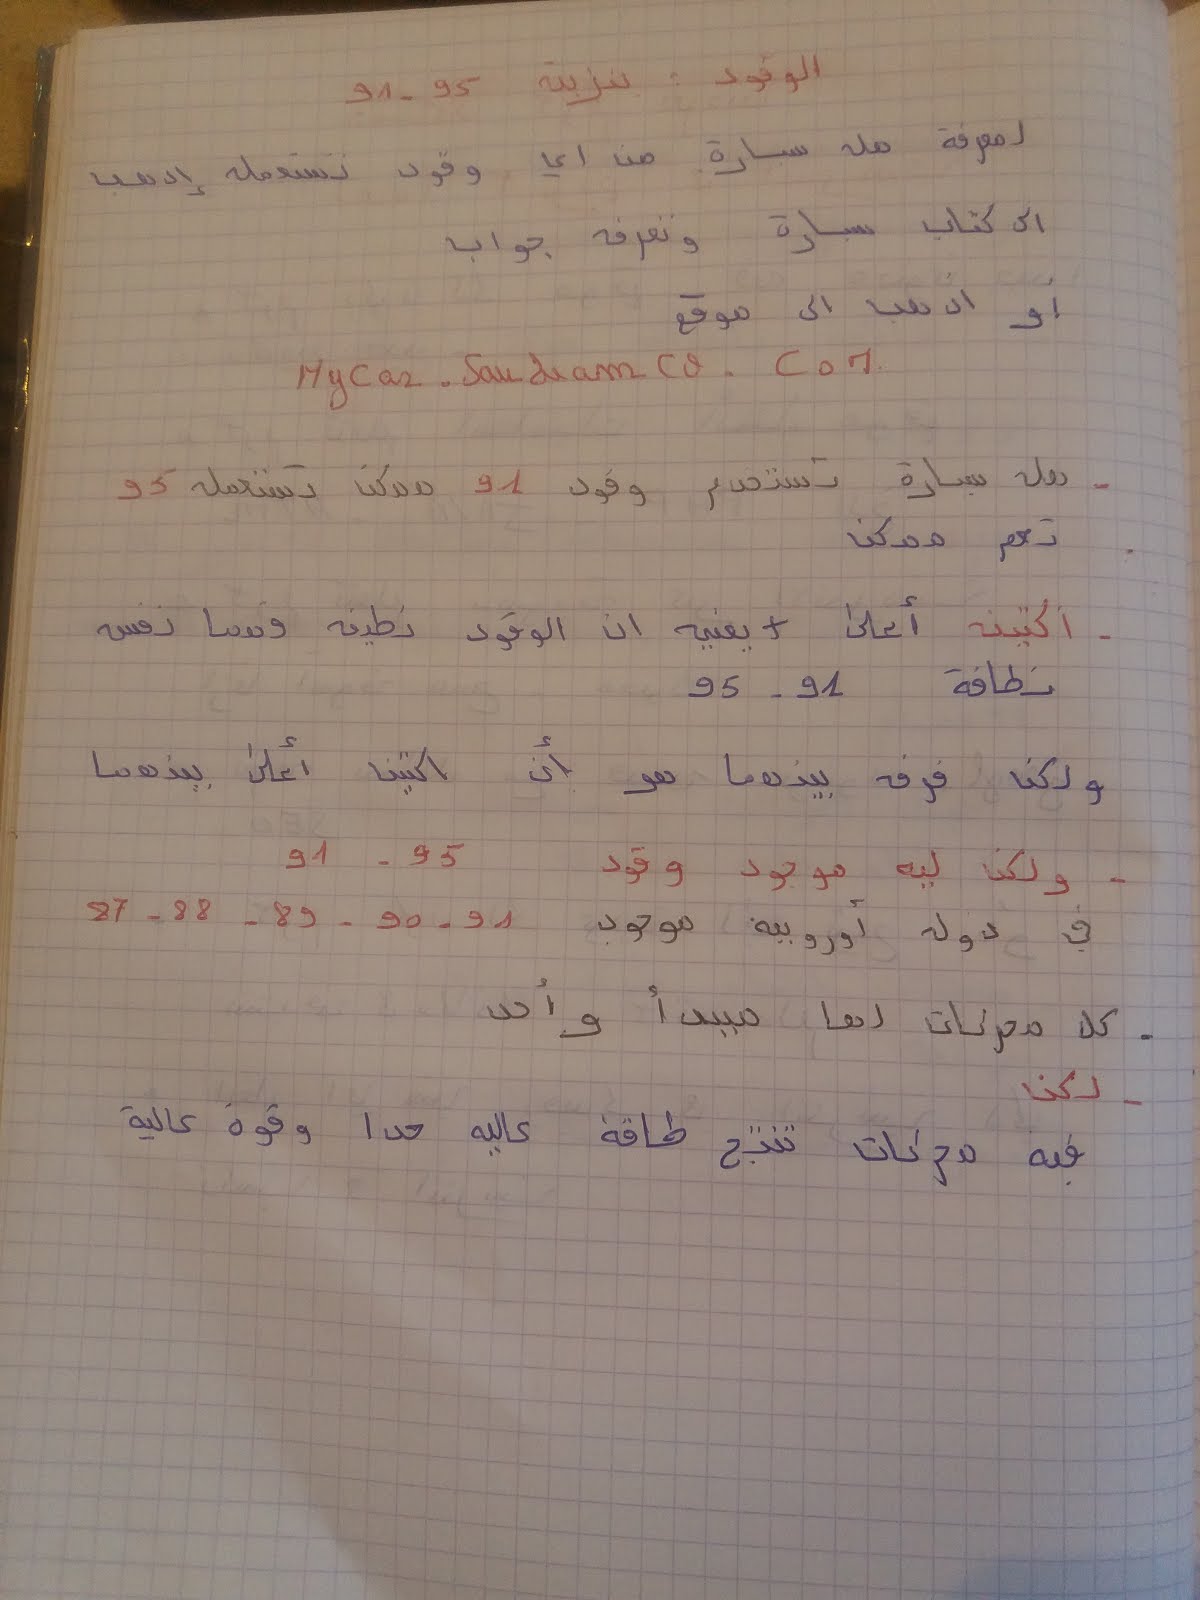 الوقود : بنزين 95 - 91
لمعرفة هل سيارة من اي وقود تستعمل إذهب
الى كتاب سيارة وتعرف جواب
أو اذهب الى موقع
MyCar.SaudiaramCO.Com
- هل سيارة تستخدم وقود 91 ممكن تستعمل 95
. نعم ممكن
- اكتين أعلى + يعني ان الوقود نظيف فهما نفس
نظافة 91 - 95
ولكن فرق بينهما هو أن اكتين أعلى بينهما
- ولكن ليه موجود وقود 95 - 91
في دول أوروبية موجود 91 - 90 - 89 - 88 - 87
- كل محركات لها مبيدأ وأحد
- لكن
فيه محركات تنتج طاقة عاليه جدا وقوة عالية